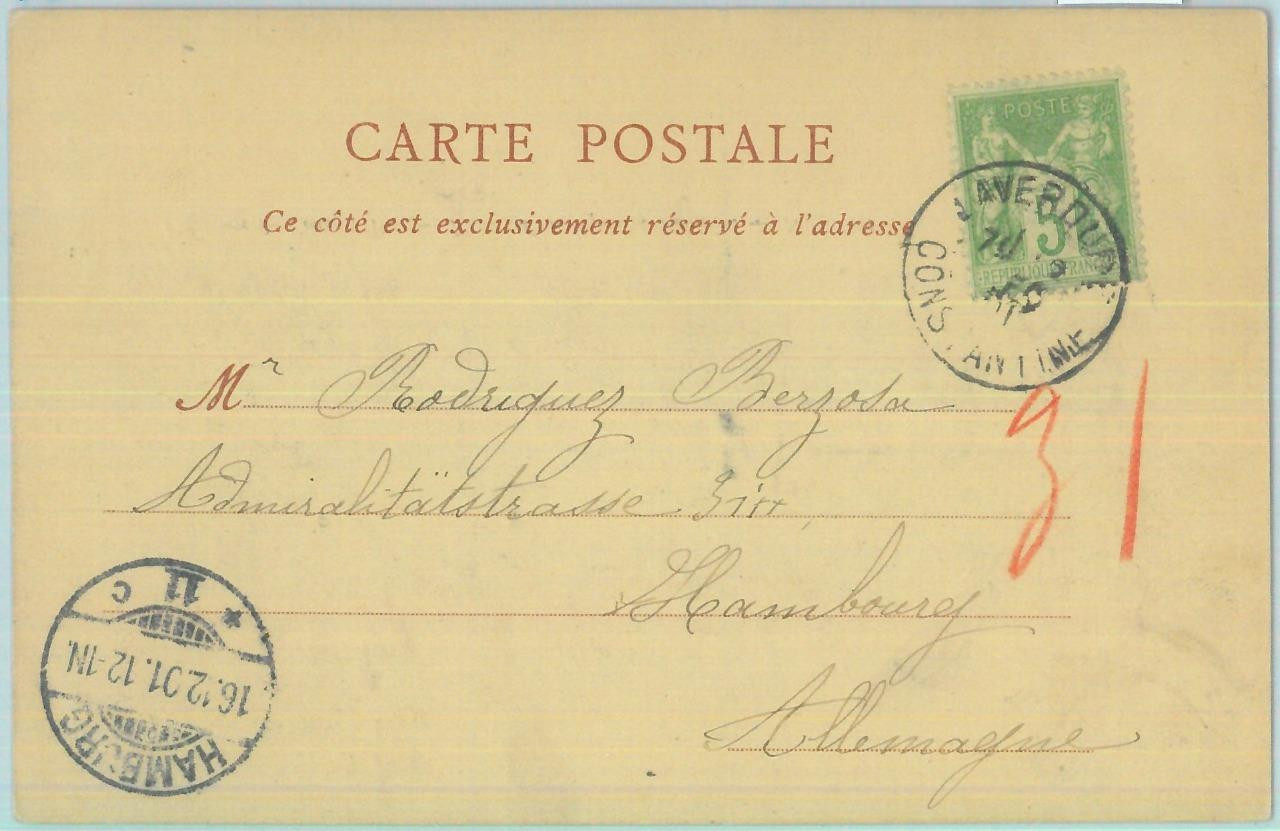 CARTE POSTALE
Ce côté est exclusivement réservé à l'adresse
POSTES
5
REPUBLIQUE FRANC
LAVERDURE
CONSTANTINE
Mr Rodriguez Berzosa
Admiralitätstrasse
Hambourg
Allemagne
31
* 11 c
16.12.01.12-1N.
HAMBURG